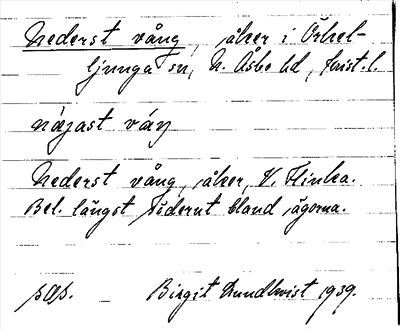 Nederst vång, åker i Örkel-
ljunga sn, N. Åsbo hd, Krist. l.
Nederst vång, åker, V. Flinka.
Bel. längst söderut bland ägorna.
Birgit Lundkvist 1939.